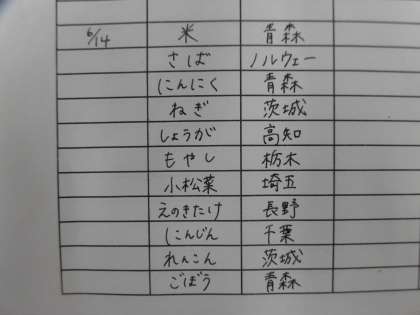 6/14 米 青森
さば ノルウェー
にんにく 青森
ねぎ 茨城
しょうが 高知
もやし 栃木
小松菜 埼玉
えのきたけ 長野
にんじん 千葉
れんこん 茨城
ごぼう 青森